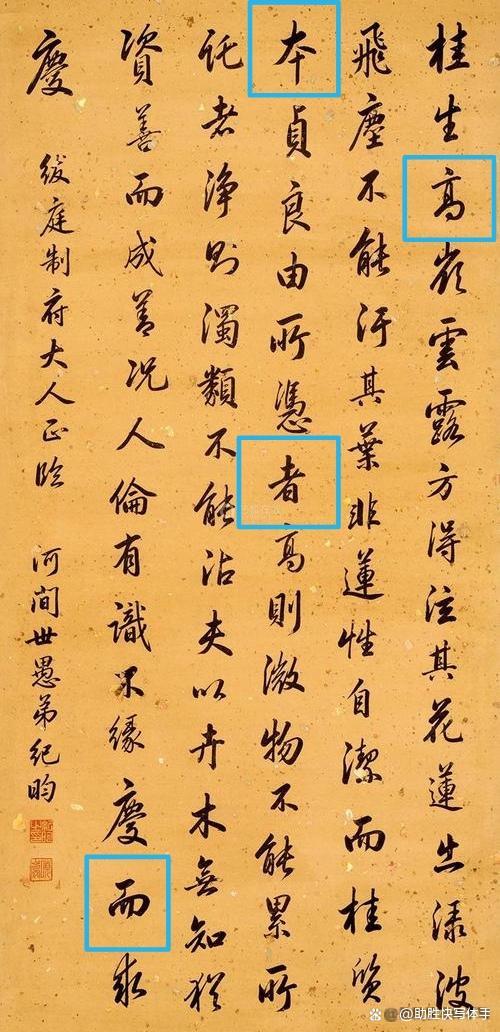 桂生高嶺雲露方得泫其花蓮出渌波
飛塵不能汙其葉非蓮性自潔而桂質
本貞良由所憑者高則微物不能累所
託者淨則濁類不能沾夫以卉木無知猶
資善而成善況人倫有識不緣慶而求
慶
紱庭制府大人正臨
河間世愚弟紀昀
@助胜快写体手